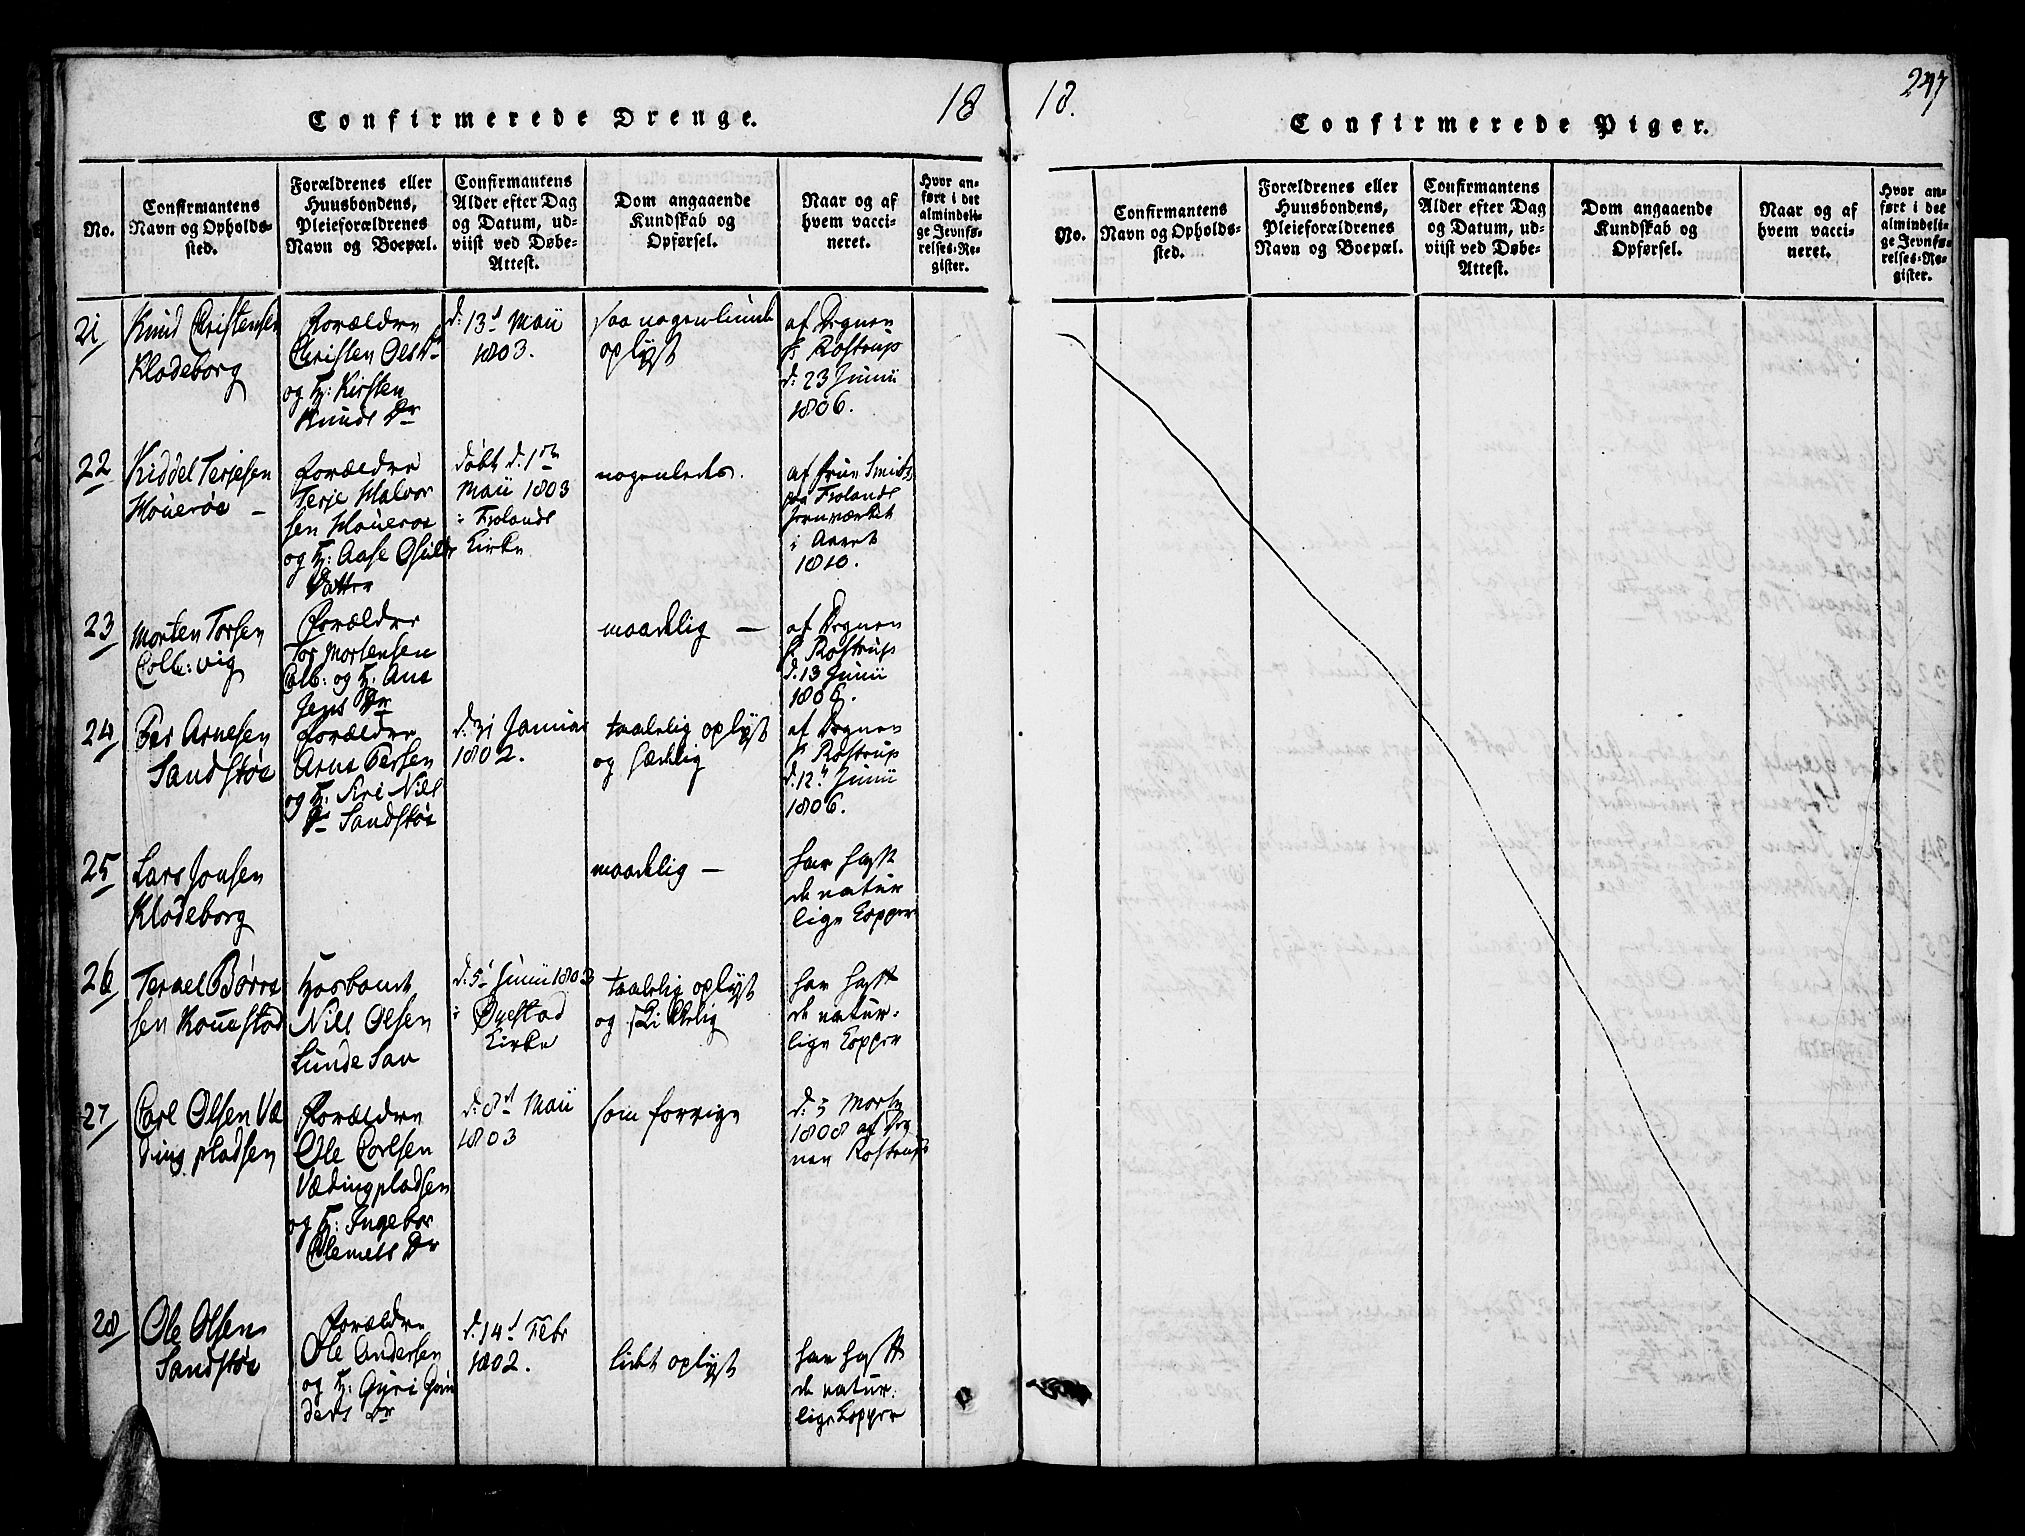 18
Confirmerede Drenge.
No.
Confirmantens
Navn og Opholds-
sted.
Forældrenes eller
Huusbondens,
Pleieforældrenes
Navn og Boepæl.
Confirmantens
Alder efter Dag
og Datum, ud-
viist ved Døbe-
Attest.
Dom angaaende
Kundskab og
Opførsel.
Naar og af
hvem vacci-
neret.
Hvor an-
ført i det
almindeli-
ge Jevnfø-
relses-Re-
gister.
21
Knud Christensen
Klodeborg
Forældre
Christen Ols
og H: Kirsten
Knuds Dr
d: 13d Maii
1803.
saa nogenlunde
oplÿst
af Degnen
Hr Rostrup
d: 23 Junii
1806.
22
Kiddel Terjesen
Houerøe –
Forældre
Terje Halvor
sen Houeroe
og H: Aase
Datter
døbt d. 1ste
Maii 1803
i Frolands
Kirke
nogenledes.
af Frue Smith
paa Frolands
Jernværket
i Aaret
1810.
23
Morten Torsen
Colb: vig
Forældre
Tor Mortensen
Colb: og H: Ane
Jens Dr
maadelig –
af Degnen
Hr Rostrup
d. 13 Junii
1806.
24
Per Arnesen
Sandstøe
Forældre
Arne Persen
og H: Siri Nils
Dr Sandstøe
d: 31 Januar
1802.
taalelig oplÿst
og sædelig
af Degnen
Hr Rostrup
d. 12 Junii
1806.
25
Lars Jonsen
Klodeborg
maadelig –
har hafft
de natur
lige Kopper
26
Terael Børre
sen Kouestad
Hosbond
Nils Olsen
Lunde
d: 5d Junii 1803
i Øyestad
Kirke
taalelig oplÿst
og skikkelig
har hafft
de natur-
lige Kopper
27
Carl Olsen Væ
ding pladsen
Forældre
Ole Carlsen
Vædingpladsen
og H: Ingebor
Clemets Dr
d: 8d Maii
1803
som forrige
d: 3 Morts
1808 af Deg
nen Rostrup
28
Ole Olsen
Sandstøe
Forældre
Ole Andersen
og H: Guri Gun
ders Dr
d. 14d Febr
1802.
lidt oplÿst
har hafft
de natur.
lige Kopper
18.
247
Confirmerede Piger.
No.
Confirmantens
Navn og Opholds-
sted.
Forældrenes eller
Huusbondens,
Pleieforældrenes
Navn og Boepæl.
Confirmantens
Alder efter Dag
og Datum, ud-
viist ved Døbe-
Attest.
Dom angaaende
Kundskab og
Opførsel.
Naar og af
hvem vacci-
neret.
Hvor an-
ført i det
almindeli-
ge Jevnfø-
relses-Re-
gister.